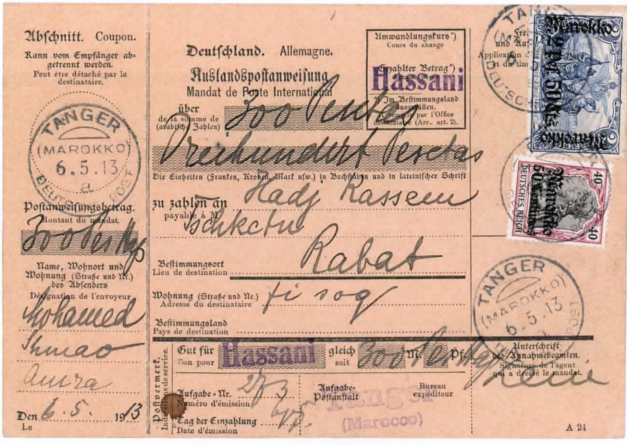 Abschnitt. Coupon.
Kann vom Empfänger ab-
getrennt werden.
Peut être détaché par le
destinataire.
TANGER
(MAROKKO)
6.5.13
a
DEUTSCHE POST
Postanweisungsbetrag.
Montant du mandat.
300 Pes
Name, Wohnort und
Wohnung (Straße und Nr.)
des Absenders
Désignation de l'envoyeur
Mohamed
Den 6. 5. 1913
Le
Deutschland. Allemagne.
Auslandspostanweisung
Mandat de Poste International
über
de la somme de
(arabische Zahlen)
300 Pesetas
Dreihundert Pesetas
Die Einheiten (Franken, Kronen, Mark usw.) in Buchstaben und in lateinischer Schrift
zu zahlen an
payable à M
Hadj Kassem
Bestimmungsort
Lieu de destination
Rabat
Wohnung (Straße und Nr.)
Adresse du destinataire
fi soq
Bestimmungsland
Pays de destination
Gut für
Bon pour
Hassani
gleich
soit
300 Pes
M
Pf.
Postvermerk.
Indications de service.
Aufgabe-Nr.
Numéro d'émission
273
Tag der Einzahlung
Date d'émission
6/5
Aufgabe-
Postanstalt
Bureau
expéditeur
Tanger
(Marocco)
Unterschrift
des Annahmebeamten.
Signature de l'agent
qui a dressé le mandat.
A 24
Umwandlungskurs*)
Cours du change
Gezahlter Betrag*)
Hassani
Im Bestimmungsland
auszufüllen.
par l'Office
(Arr., art. 2).
TANGER
Marokko
2 Pes 50 Cts
Marokko
40
DEUTSCHES REICH
40
Marokko
50 Centimos
TANGER
(MAROKKO)
6.5.13
a
DEUTSCHE POST